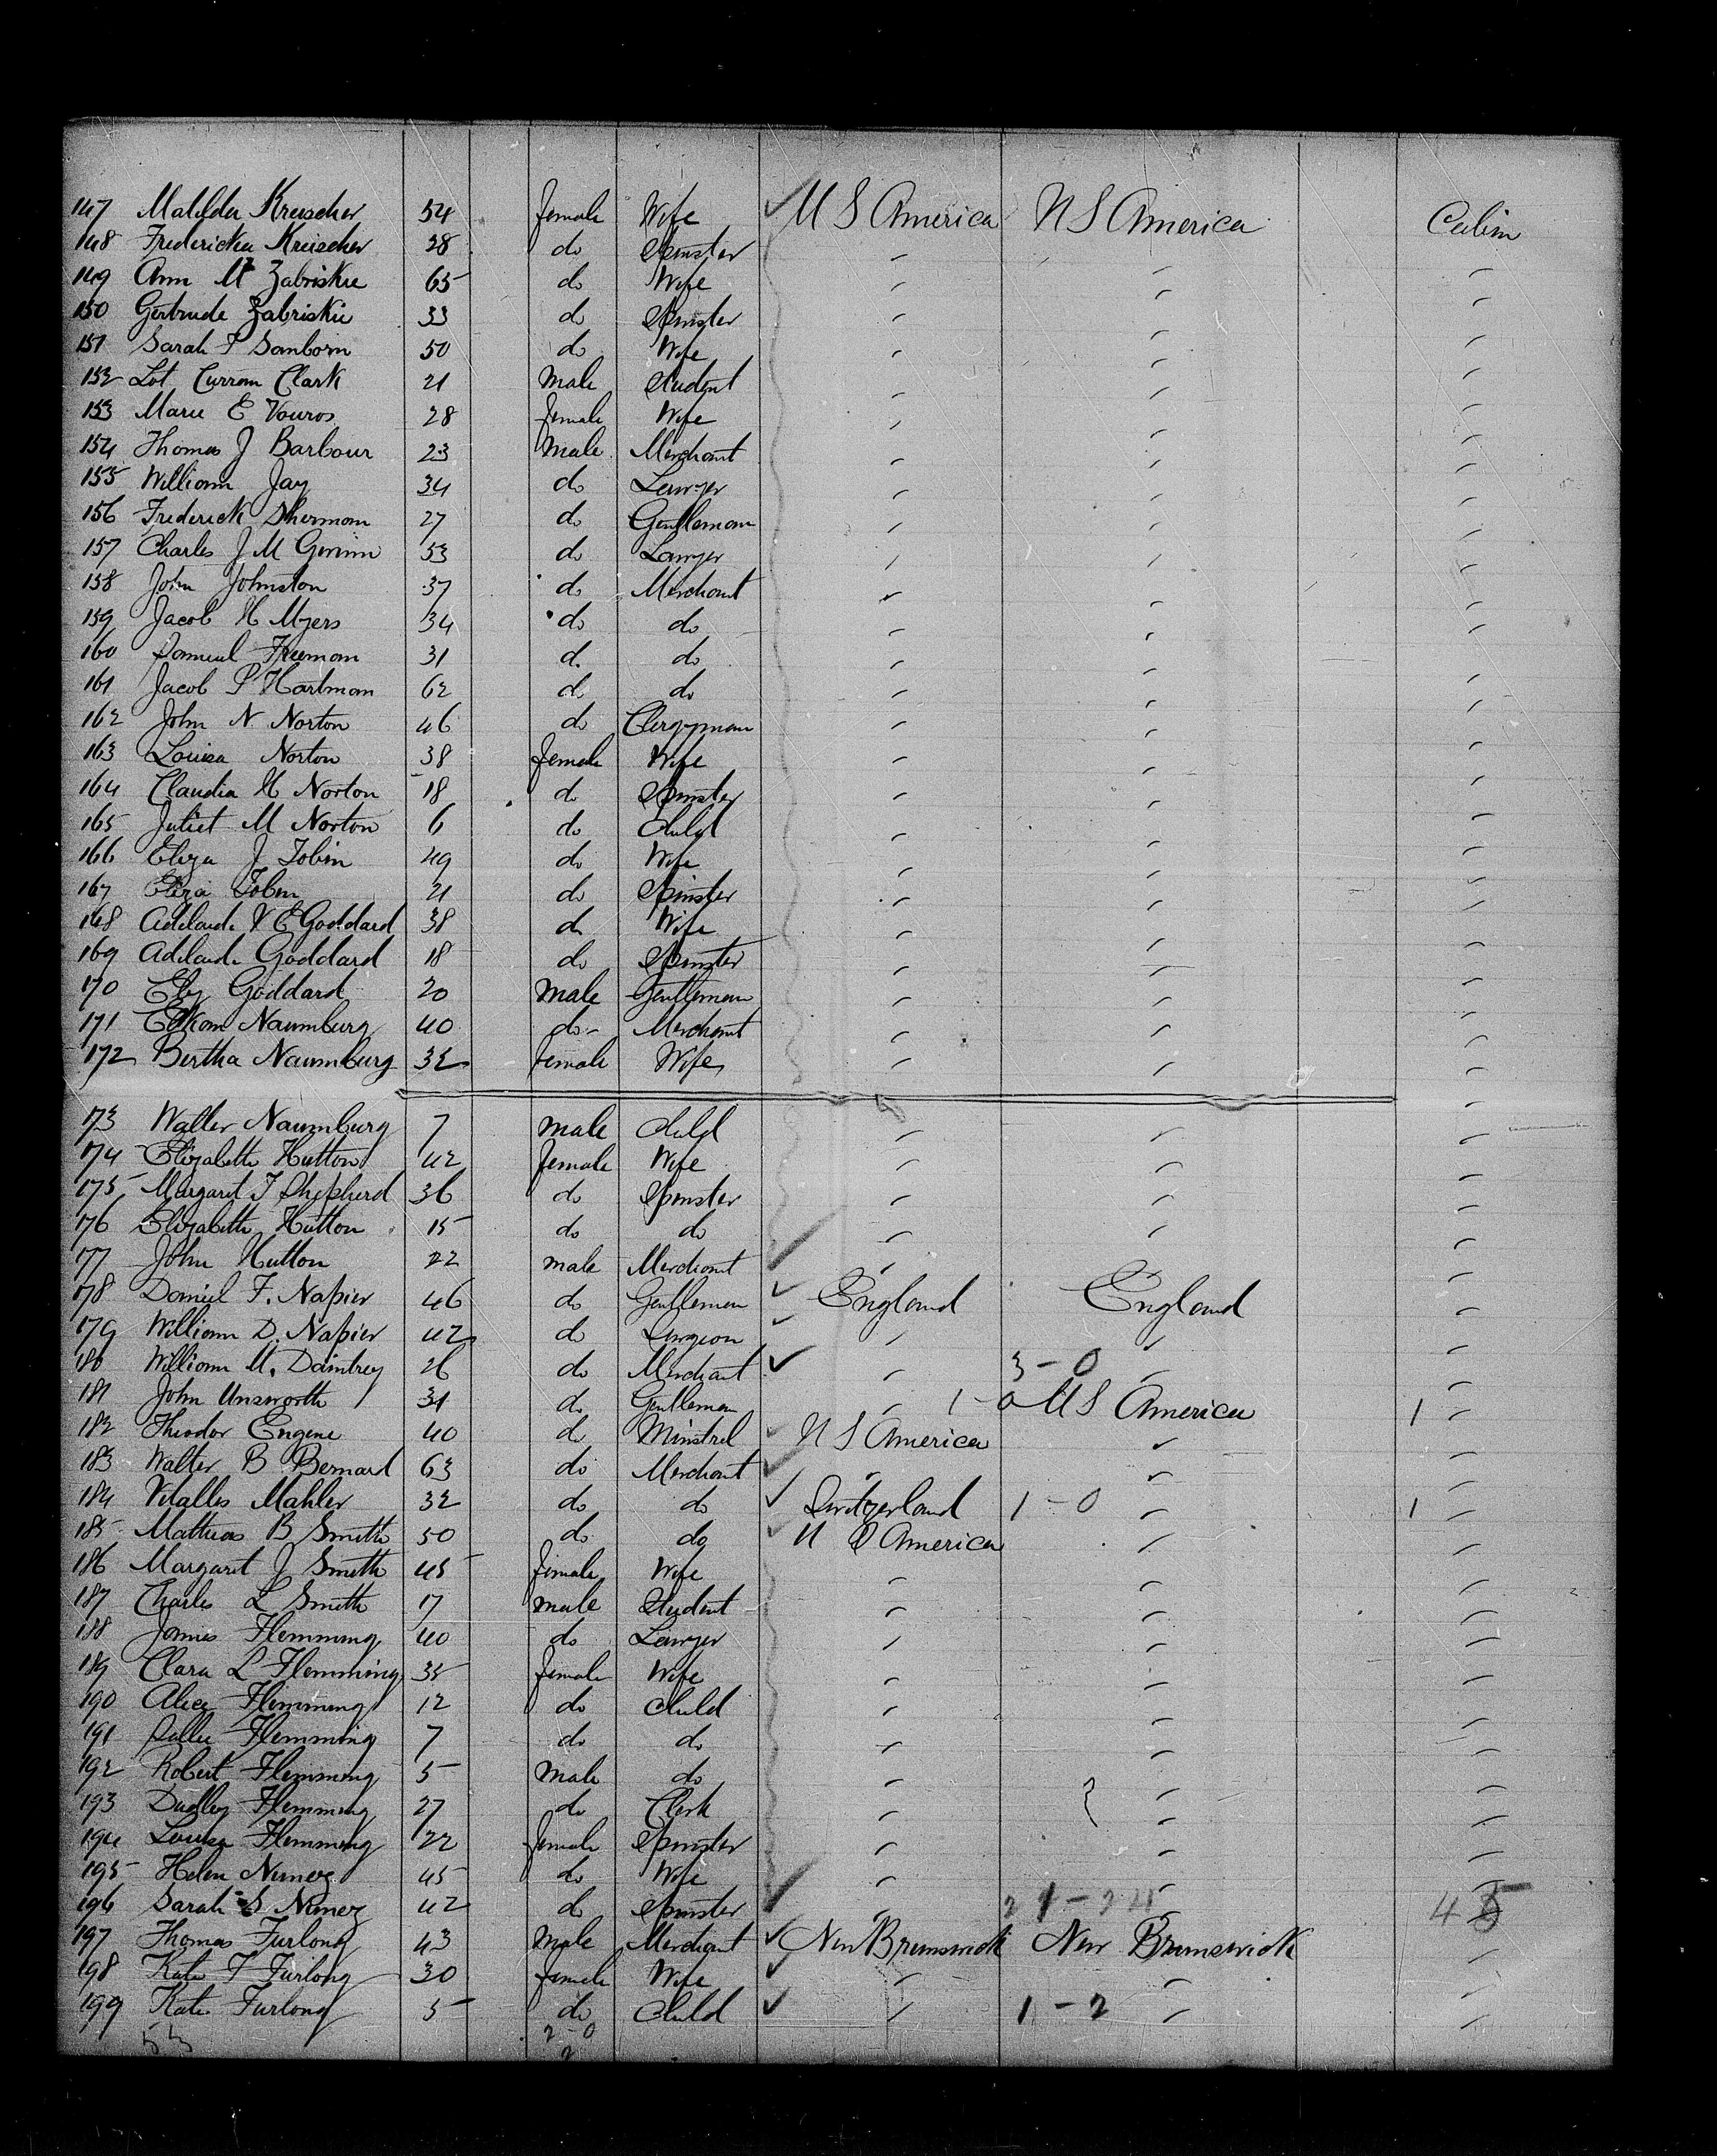 147 Matilda Kreischer 54 female Wife U S America U S America Cabin
148 Fredericka Kreischer 28 do Spinster
149 Ann M Zabriskie 65 do Wife
150 Gertrude Zabriskie 33 do Spinster
151 Sarah F Sanborn 50 do Wife
152 Lot Curran Clark 21 Male Student
153 Marie E Vouros 28 female Wife
154 Thomas J Barbour 23 Male Merchant
155 William Jay 34 do Lawyer
156 Frederick Sherman 27 do Gentleman
157 Charles J M 53 do Lawyer
158 John Johnston 37 do Merchant
159 Jacob H Myers 34 do do
160 Samuel Freeman 31 do do
161 Jacob S Hartman 62 do do
162 John N. Norton 46 do Clergyman
163 Louisa Norton 38 female Wife
164 Claudia H Norton 18 do Spinster
165 Juliet M Norton 6 do Child
166 Eliza J Tobin 49 do Wife
167 Eliza Tobin 21 do Spinster
168 Adelaide V E Goddard 38 do Wife
169 Adelaide Goddard 18 do Spinster
170 Goddard 20 Male Gentleman
171 Elkan Naumburg 40 do Merchant
172 Bertha Naumburg 32 female Wife
173 Walter Naumburg 7 male Child
174 Elizabeth Hutton 42 female Wife
175 Margaret T Shepherd 36 do Spinster
176 Elizabeth Hutton 15 do do
177 John Hutton 22 male Merchant
178 Daniel F. Napier 46 do Gentleman England England
179 William D. Napier 42 do Surgeon
180 William M. Daintrey 26 do Merchant 3-0
181 John Unsworth 31 do Gentleman 1-0 U S America 1
182 Theodor Eugene 40 do Minstrel U S America
183 Walter B Bernard 63 do Merchant
184 Vitalles Mahler 32 do do Switzerland 1-0 1
185 Mathias B Smith 50 do do U S America
186 Margaret J Smith 45 female Wife
187 Charles L Smith 17 male Student
188 James Flemming 40 do Lawyer
189 Clara L Flemming 35 female Wife
190 Alice Flemming 12 do Child
191 Sallie Flemming 7 do do
192 Robert Flemming 5 Male do
193 Dudley Flemming 27 do Clerk
194 Louisa Flemming 22 female Spinster
195 Helen Nunez 45 do Wife
196 Sarah S Nunez 42 do Spinster 21-24 45
197 Thomas Furlong 43 Male Merchant New Brunswick New Brunswick
198 Kate T Furlong 30 female Wife
199 Kate Furlong 5 do Child 1-2
53 2-0
2